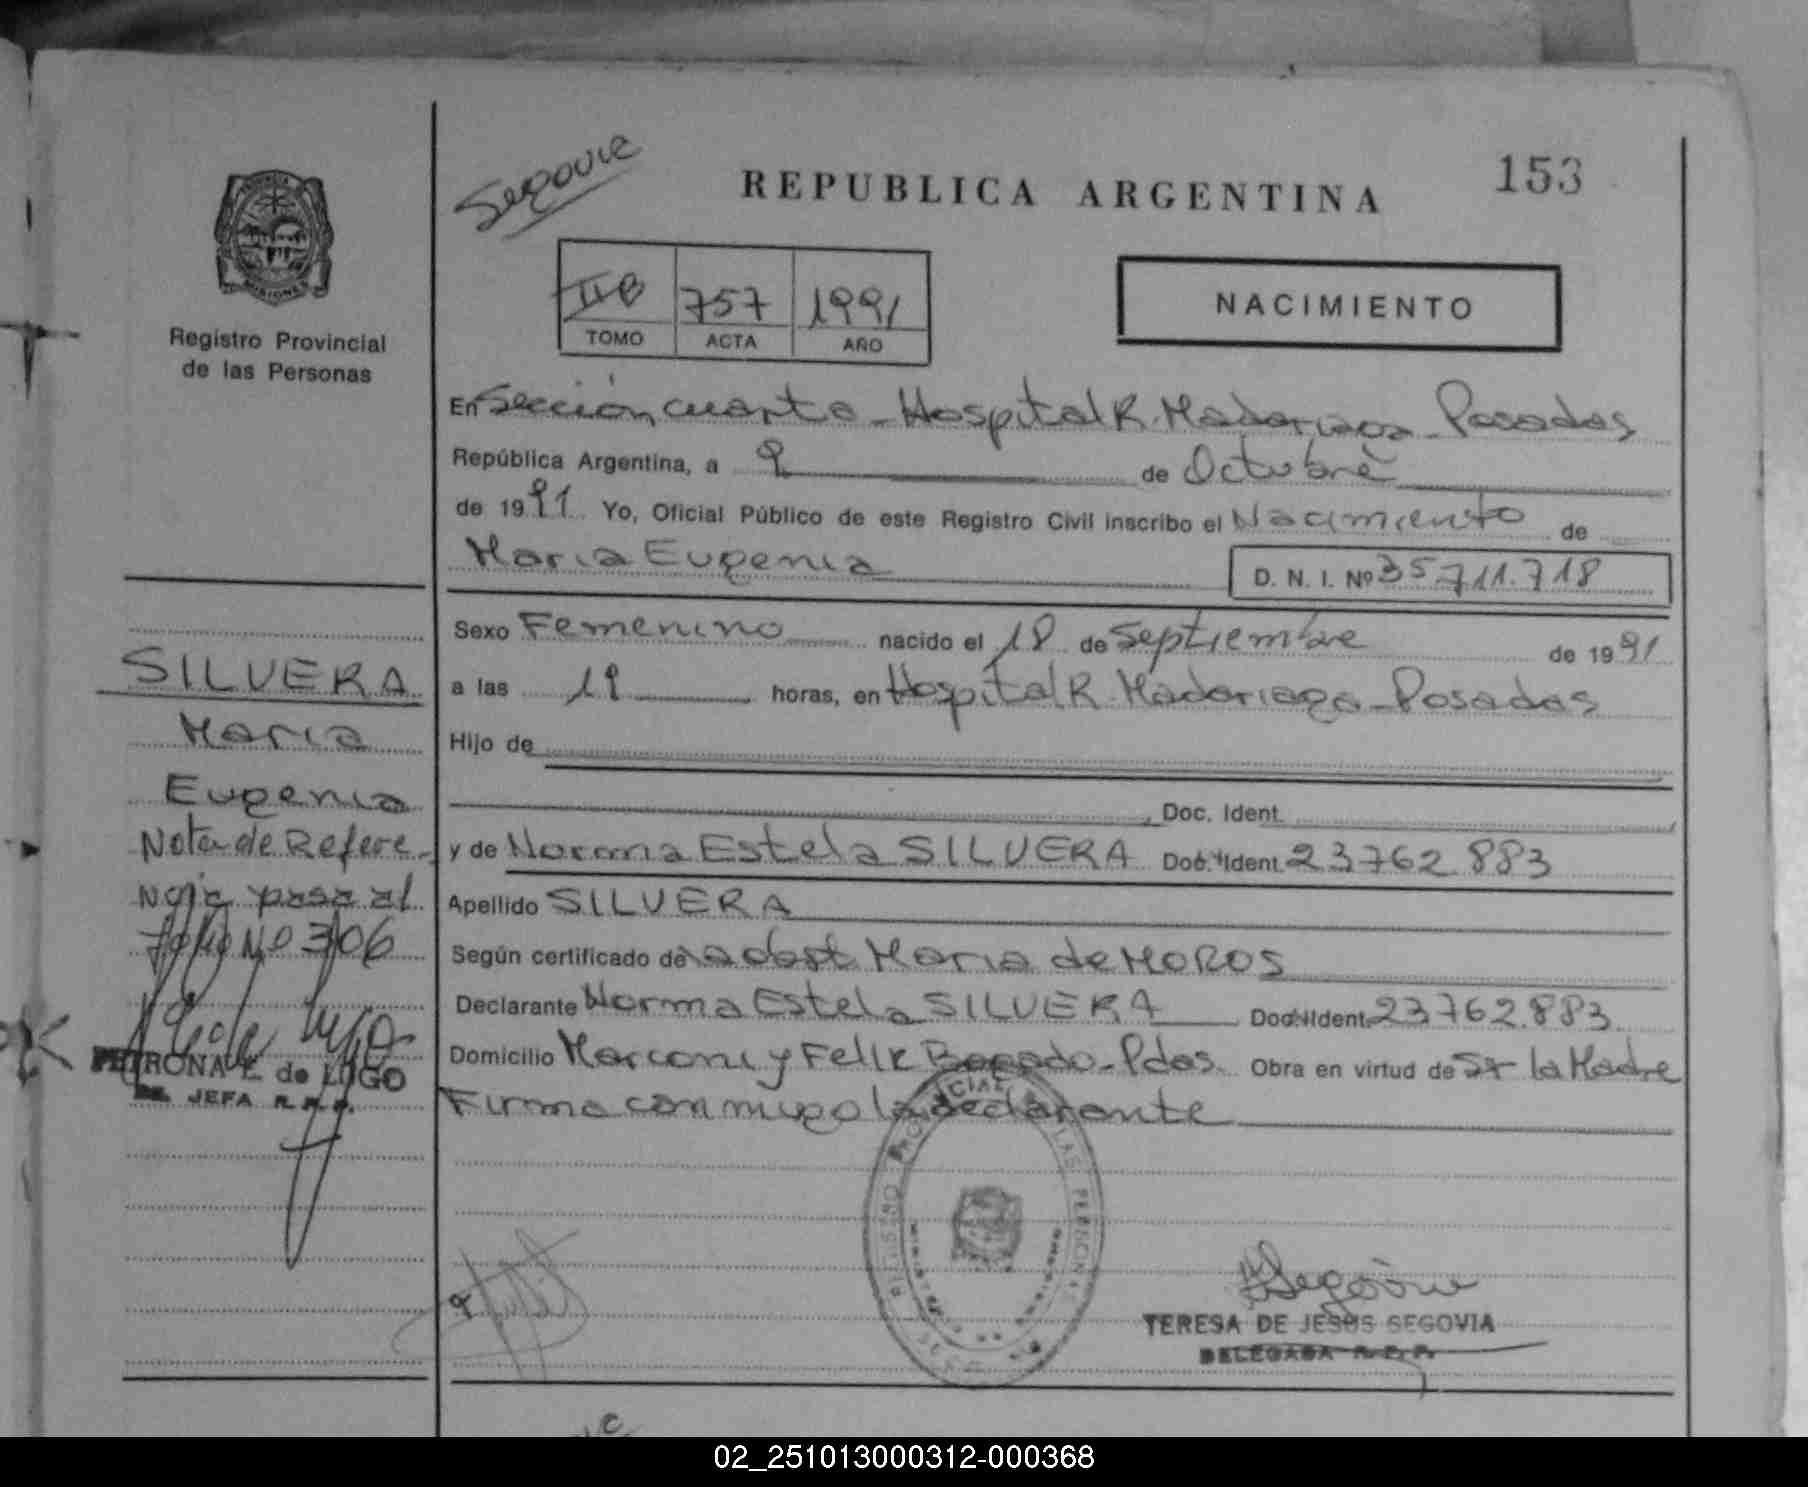 Segovia
REPUBLICA ARGENTINA
153
IIB 757 1991
TOMO ACTA AÑO
NACIMIENTO
Registro Provincial
de las Personas
MISIONES
En Sección cuarta - Hospital R. Madariaga - Posadas
República Argentina, a 9 de Octubre
de 1991 Yo, Oficial Público de este Registro Civil inscribo el Nacimiento de
Maria Eugenia D. N. I. Nº 35.711.718
Sexo Femenino nacido el 18 de Septiembre de 1991
a las 19 horas, en Hospital R. Madariaga - Posadas
Hijo de
Doc. Ident.
y de Norma Estela SILVERA Doc. Ident. 23762.883
Apellido SILVERA
Según certificado de la obst Maria de MOROS
Declarante Norma Estela SILVERA Doc. Ident. 23762.883
Domicilio Marconi y Felix Bogado - Pdas. Obra en virtud de Sr la Madre
Firma conmigo la declarante
SILVERA
Maria
Eugenia
Nota de Refere-
ncia pasa al
folio Nº 306
PETRONA E. de LUGO
JEFA R.P.P.
REGISTRO PROVINCIAL DE LAS PERSONAS
TERESA DE JESUS SEGOVIA
DELEGADA R.P.P.
02_251013000312-000368